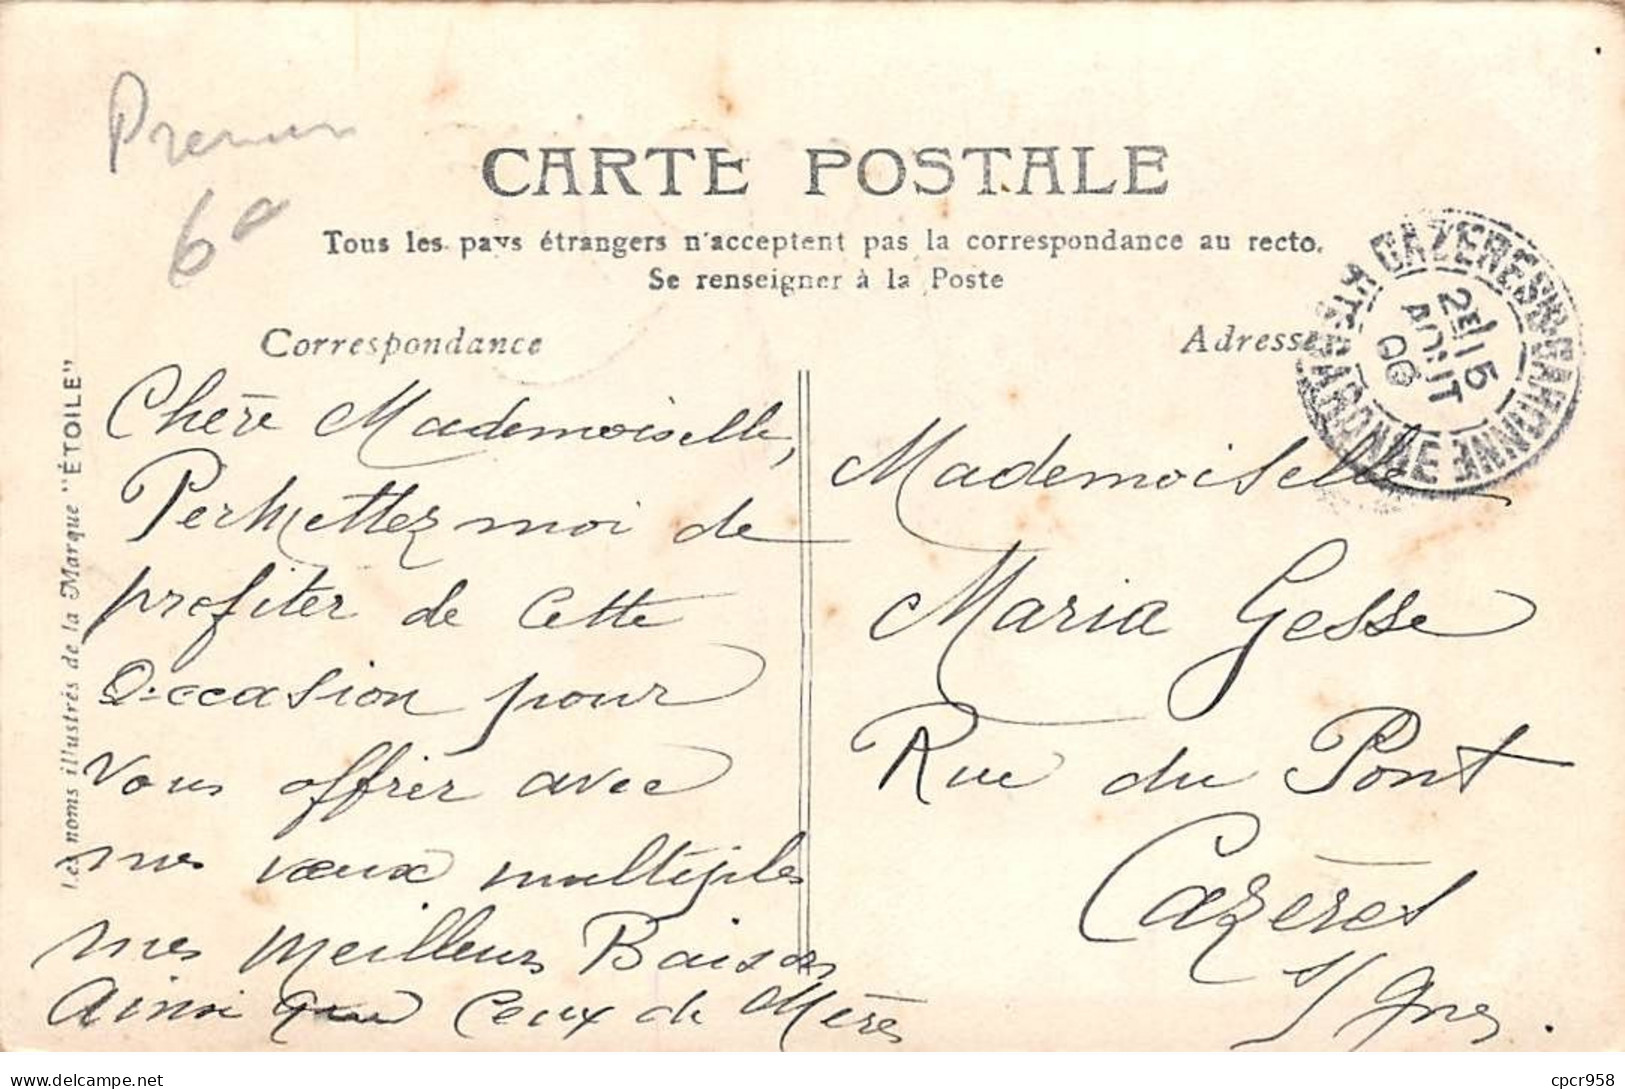 CARTE POSTALE
Tous les pays étrangers n'acceptent pas la correspondance au recto.
Se renseigner à la Poste
Correspondance
Adresse
CAZERES-S-GARONNE
HTE GARONNE
2E/15
AOUT
06
Les noms illustrés de la Marque "ÉTOILE"
Chère Mademoiselle,
Permettez moi de
profiter de cette
Occasion pour
Vous offrir avec
mes vœux multiples
mes meilleurs Baisers
Ainsi que Ceux de Mères
Mademoiselle
Maria Gesse
Rue du Pont
Cazères
s/ Gne.
Prenom
6
cpcr958